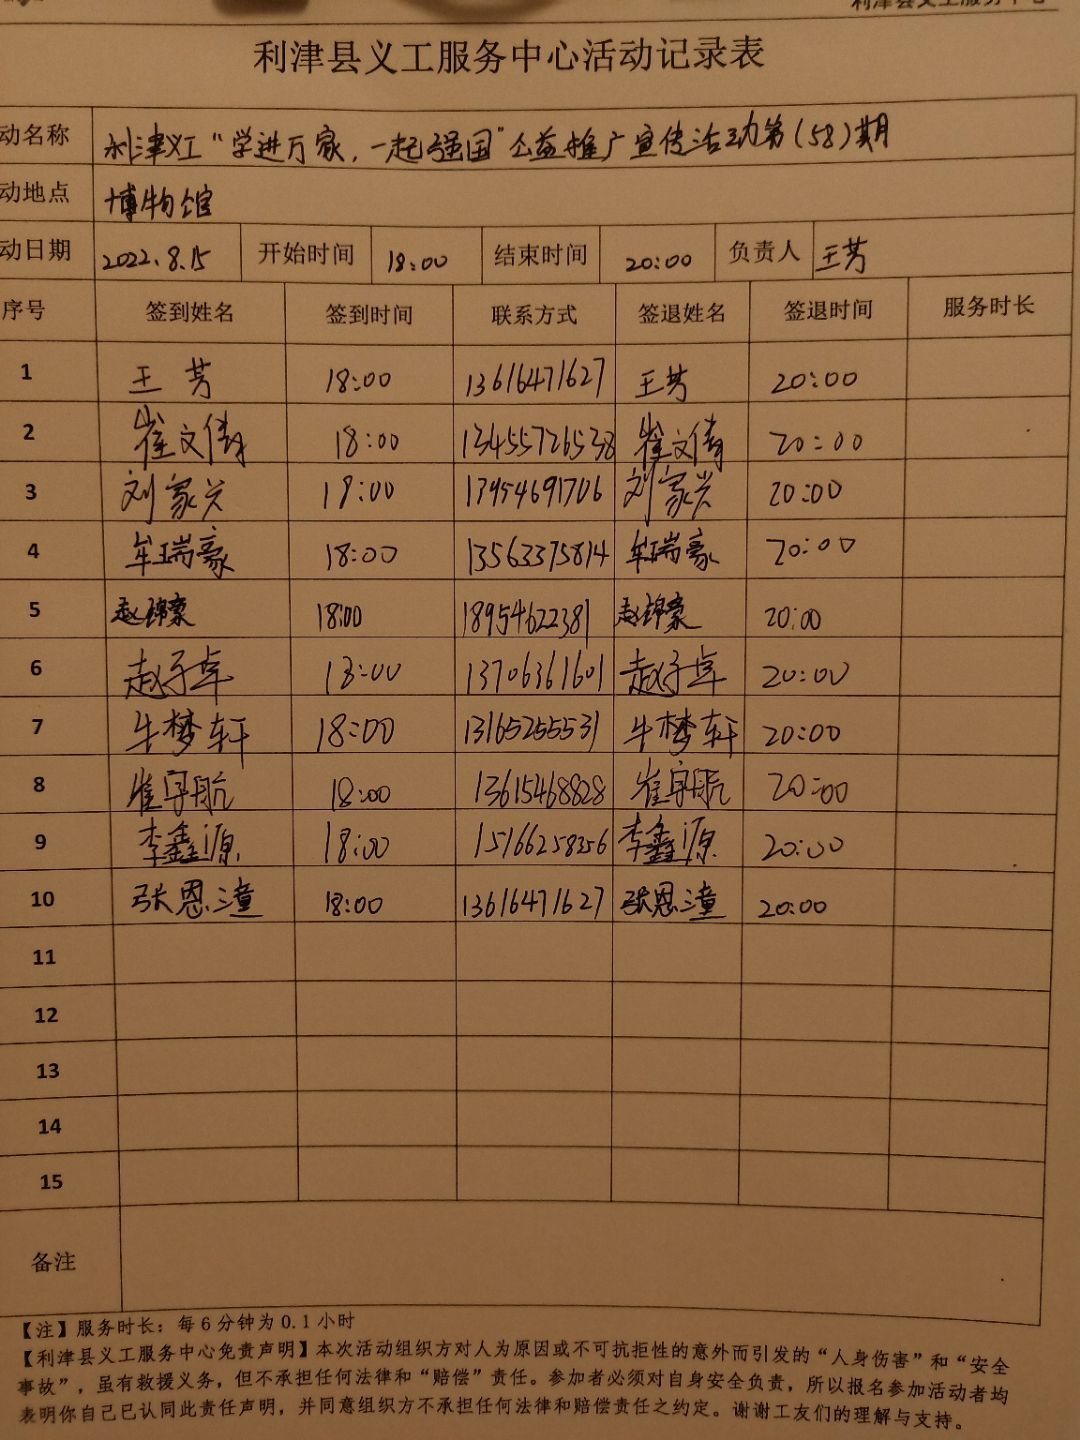 利津县义工服务中心
利津县义工服务中心活动记录表
动名称 利津义工“学进万家，一起强国”公益推广宣传活动第(58)期
动地点 博物馆
动日期 2022.8.15 开始时间 18:00 结束时间 20:00 负责人 王芳
序号 签到姓名 签到时间 联系方式 签退姓名 签退时间 服务时长
1 王芳 18:00 13616471627 王芳 20:00
2 崔文倩 18:00 13455726538 崔文倩 20:00
3 刘家兴 18:00 13954691706 刘家兴 20:00
4 牟瑞豪 18:00 13563375814 牟瑞豪 20:00
5 赵锦豪 18:00 18954622381 赵锦豪 20:00
6 赵子卓 18:00 13706361601 赵子卓 20:00
7 牛梦轩 18:00 13165255531 牛梦轩 20:00
8 崔宇航 18:00 13615468828 崔宇航 20:00
9 李鑫源 18:00 15166258356 李鑫源 20:00
10 张恩潼 18:00 13616471627 张恩潼 20:00
11
12
13
14
15
备注
【注】服务时长：每6分钟为0.1小时
【利津县义工服务中心免责声明】本次活动组织方对人为原因或不可抗拒性的意外而引发的“人身伤害”和“安全
事故”，虽有救援义务，但不承担任何法律和“赔偿”责任。参加者必须对自身安全负责，所以报名参加活动者均
表明你自己已认同此责任声明，并同意组织方不承担任何法律和赔偿责任之约定。谢谢工友们的理解与支持。